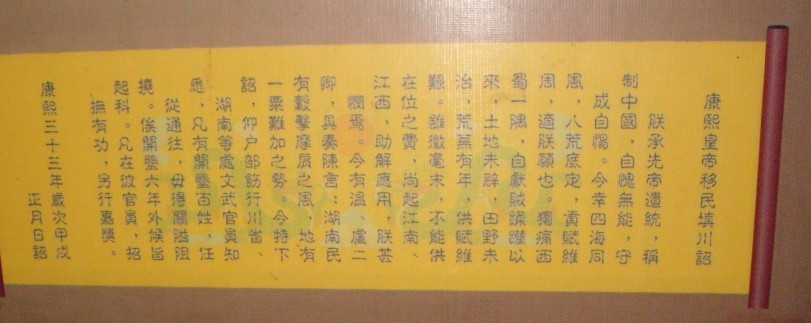 康熙皇帝移民填川詔
朕承先帝遺統，稱
制中國，自愧無能，守
成自惕。今幸四海同
風，八荒底定，貢賦維
周，適朕願也。獨痛西
蜀一隅，自獻賊蹂躪以
來，土地未辟，田野未
治，荒蕪有年，供賦維
艱。雖徵毫末，不能供
在位之費，尚起江南、
江西，助解應用，朕甚
憫焉。今有溫、盧二
卿，具奏陳言：湖南民
有轂擊摩肩之風，地有
一粟難加之勢。今特下
詔，仰戶部飭行川省、
湖南等處文武官員知
悉，凡有開墾百姓，任
從通往，毋得關隘阻
撓。俟開墾六年外候旨
起科。凡在彼官員，招
撫有功，另行嘉獎。
康熙三十三年歲次甲戌
正月日詔